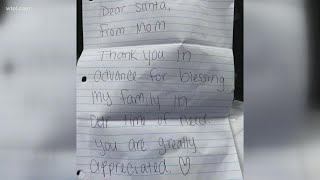 wtol.com
Dear Santa,
From Mom
Thank you in
advance for blessing
my family in
our time of need.
you are greatly
appreciated. ♡